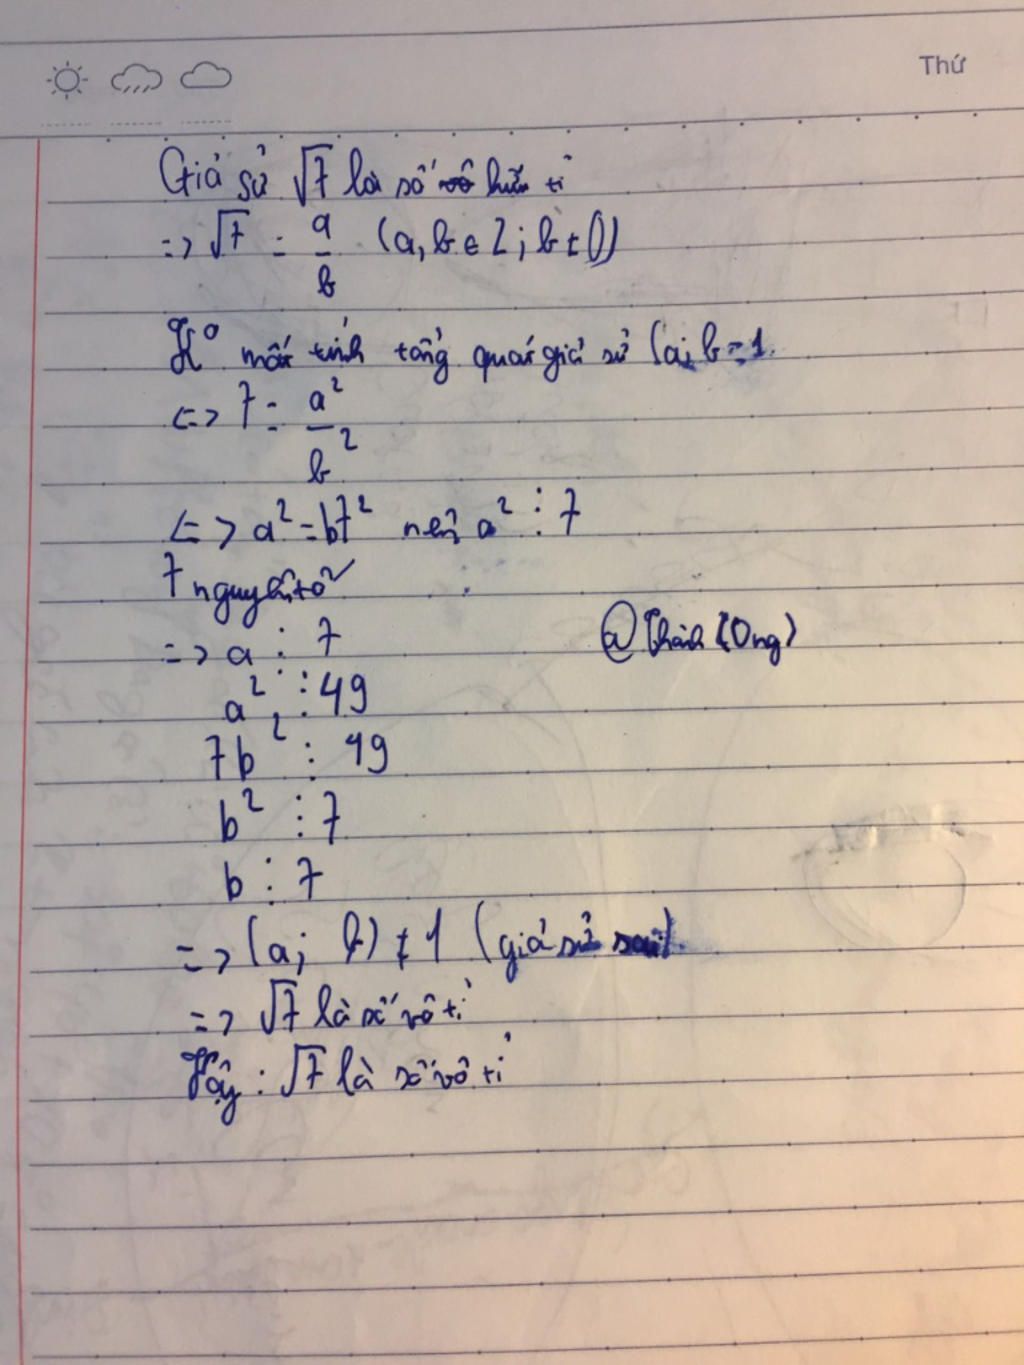 Thứ
Giả sử √7 là số vô hữu tỉ
=> √7 = a/b (a, b ∈ Z; b ≠ 0)
K° mất tính tổng quát giả sử (a; b = 1.
<=> 7 = a²/b²
<=> a² = b7² nên a² ⋮ 7
7 nguyên tố
=> a ⋮ 7
@Thành (Ong)
a² ⋮ 49
7b² ⋮ 49
b² ⋮ 7
b ⋮ 7
=> (a; b) ≠ 1 (giả sử sai).
=> √7 là số vô tỉ
Vậy: √7 là số vô tỉ